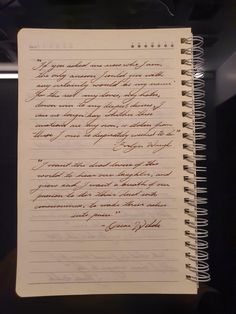 "If you asked me now who I am,
the only answer I could give with
any certainty would be my name.
For the rest: my loves, my hates,
down even to my deepest desires, I
can no longer say whether these
emotions are my own, or stolen from
those I once so desperately wished to be."
- Evelyn Waugh
"I want the dead lovers of this
world to hear our laughter, and
grow sad. I want a breath of our
passion to stir their dust with
consciousness, to wake their ashes
into pain."
- Oscar Wilde